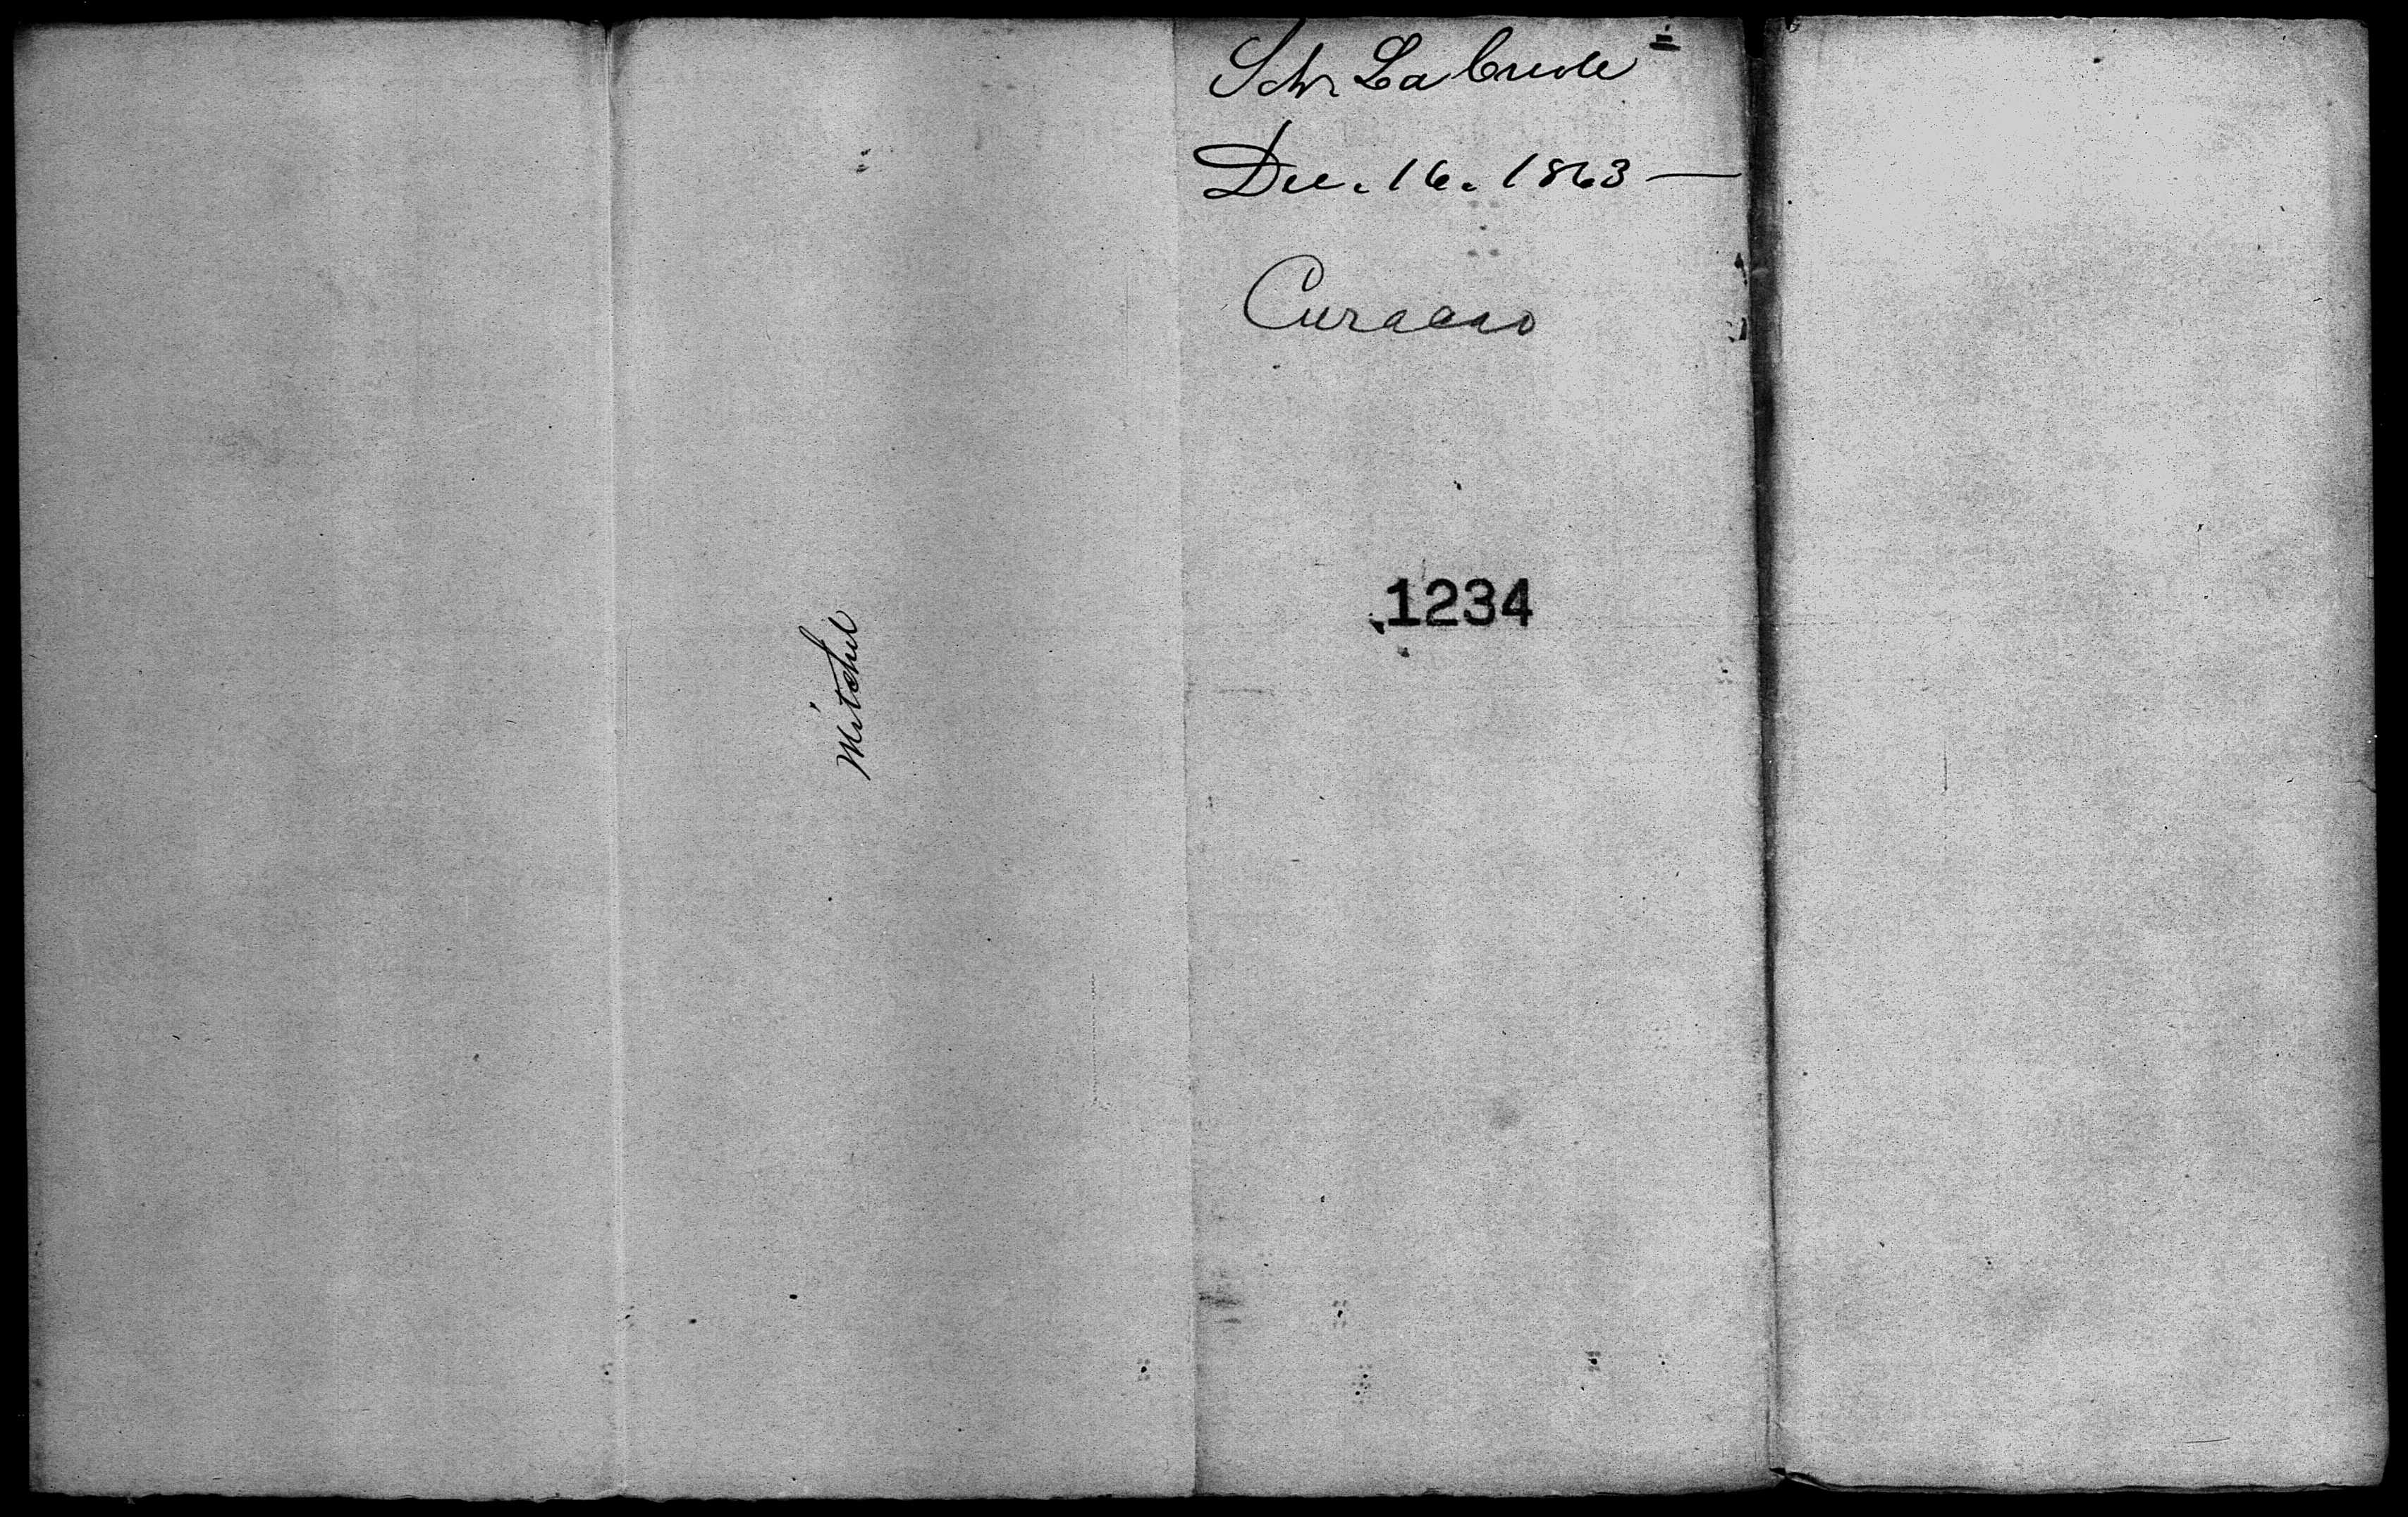 Schr La Creole
Dec. 16. 1863 —
Curacao
1234
Mitchel